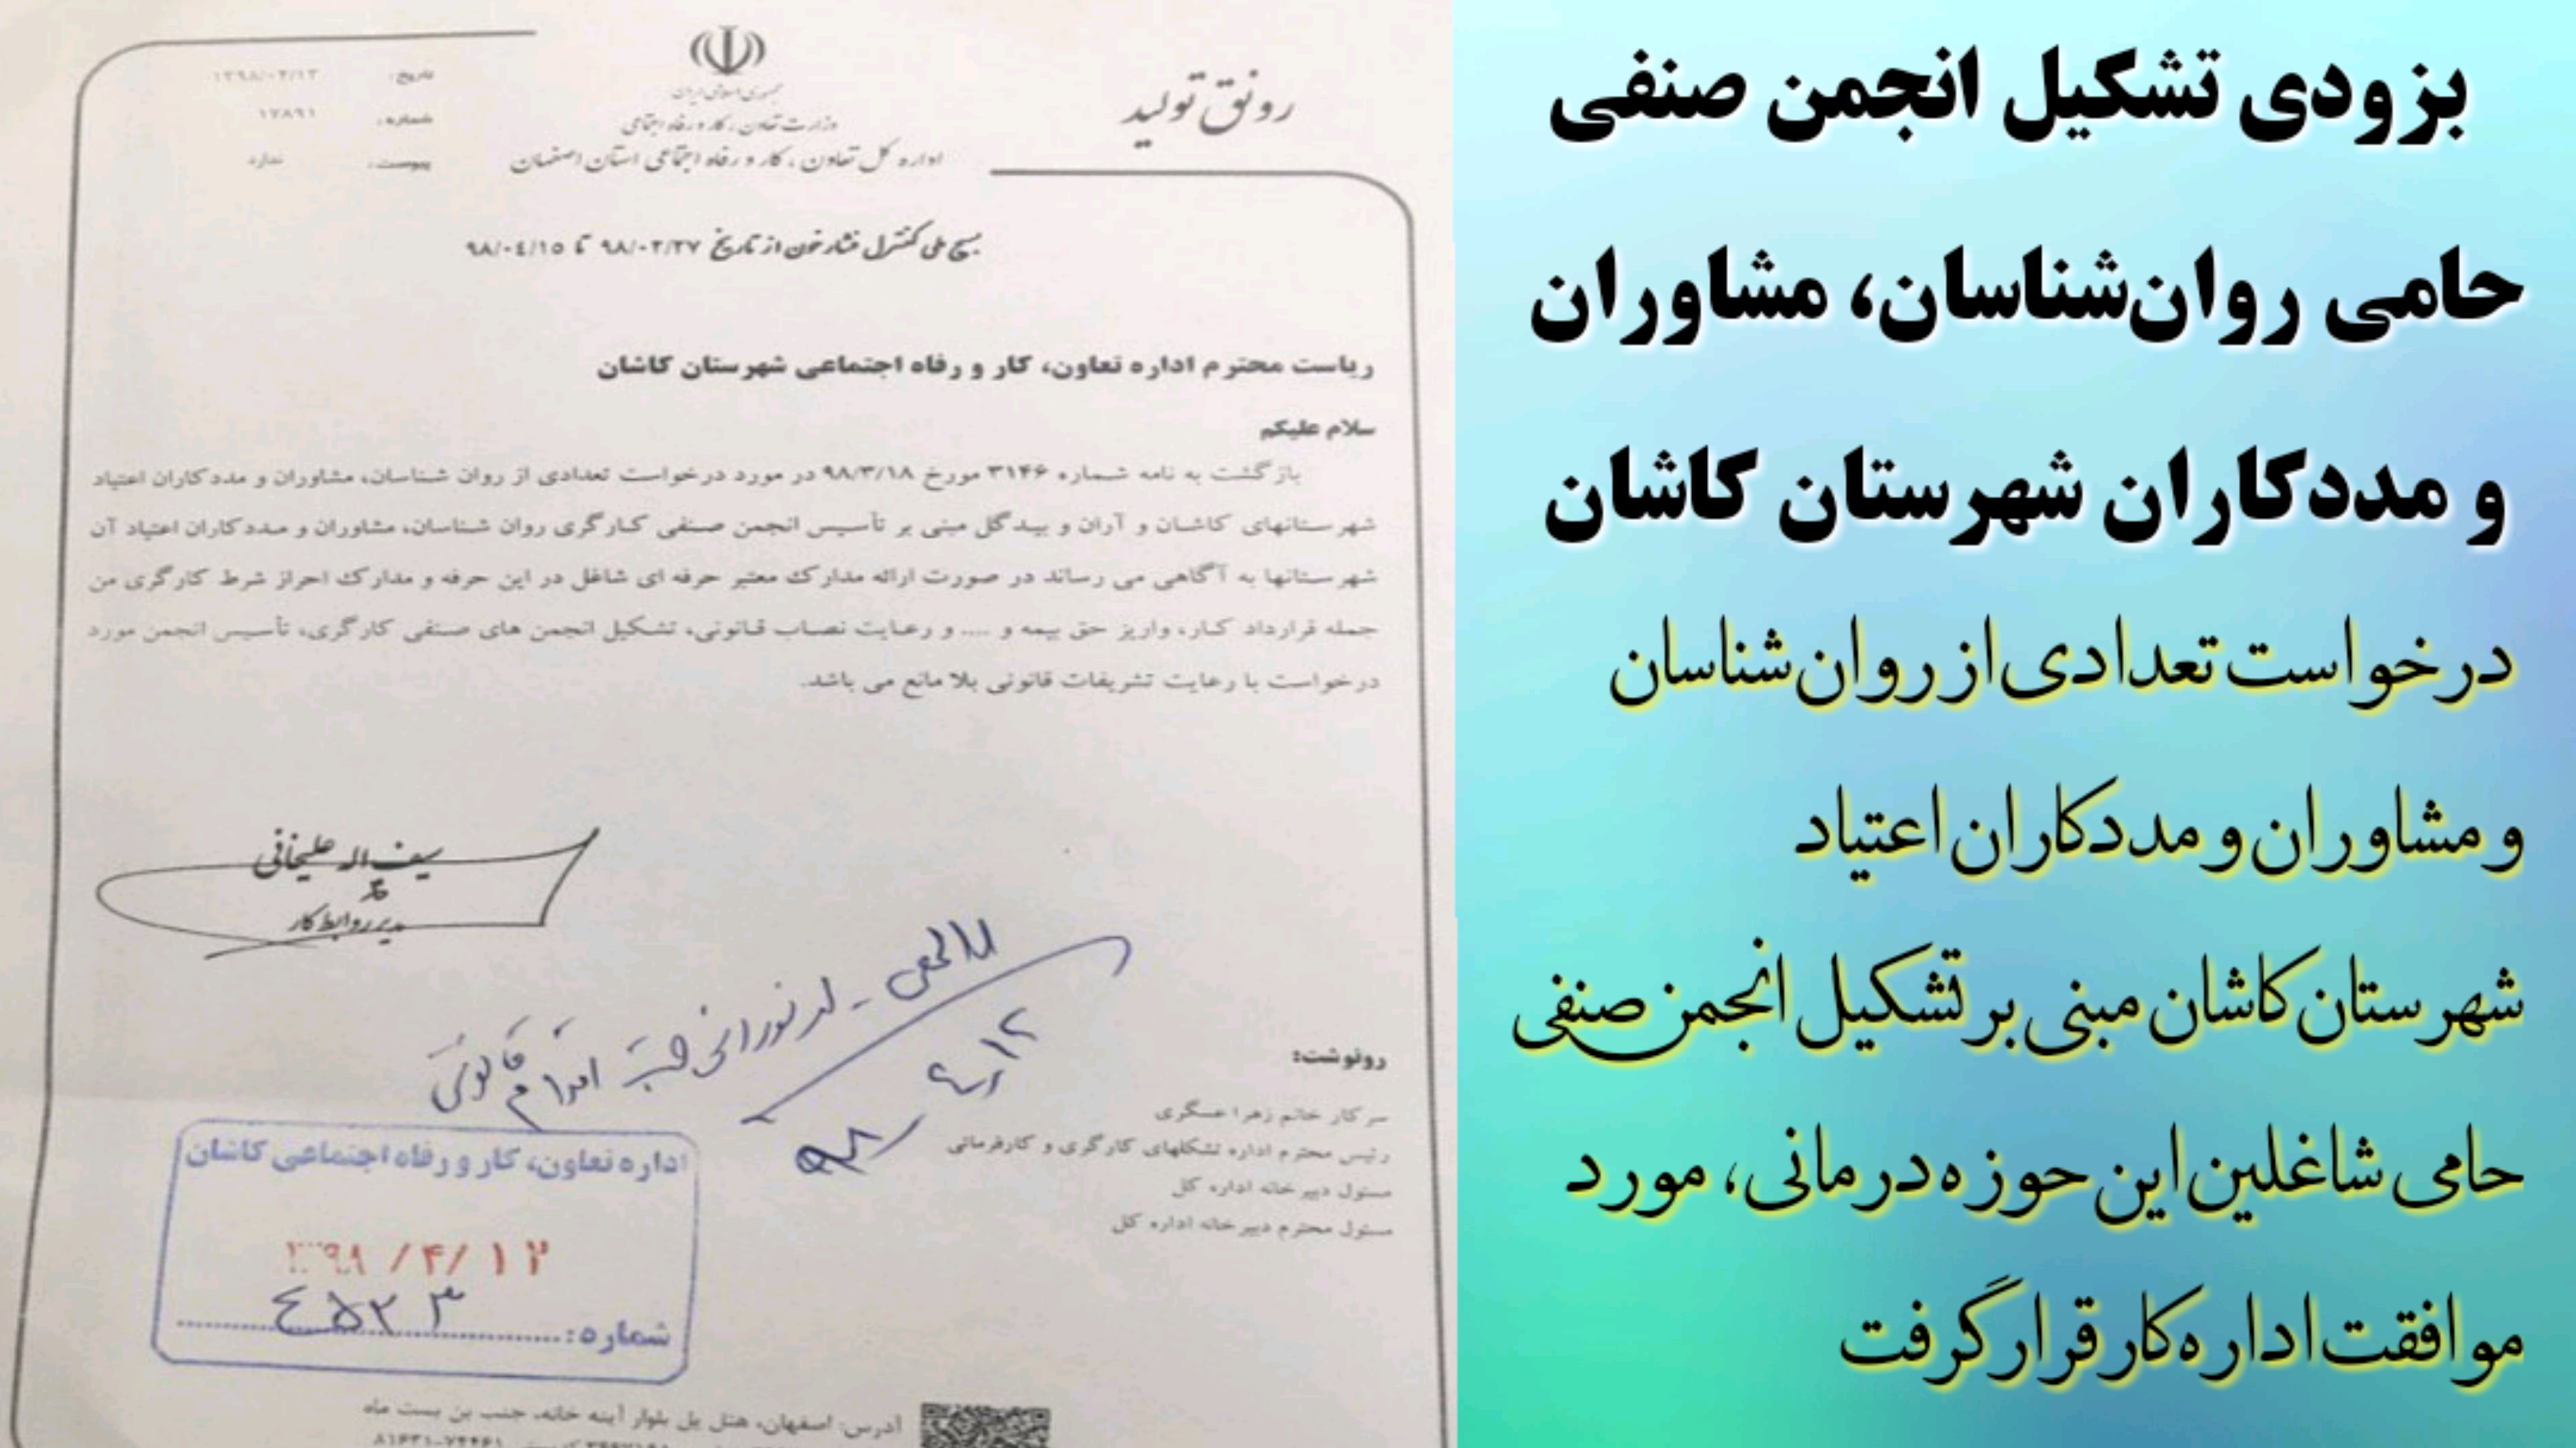 رونق تولید
جمهوری اسلامی ایران
وزارت تعاون، کار و رفاه اجتماعی
اداره کل تعاون، کار و رفاه اجتماعی استان اصفهان
تاریخ:
شماره: ۱۷۸۹۱
پیوست: ندارد
بسیج ملی کنترل فشار خون از تاریخ ۹۸/۰۳/۲۷ تا ۹۸/۰۴/۱۵
ریاست محترم اداره تعاون، کار و رفاه اجتماعی شهرستان کاشان
سلام علیکم
بازگشت به نامه شماره ۳۱۴۶ مورخ ۹۸/۳/۱۸ در مورد درخواست تعدادی از روان شناسان، مشاوران و مددکاران اعتیاد
شهرستانهای کاشان و آران و بیدگل مبنی بر تأسیس انجمن صنفی کارگری روان شناسان، مشاوران و مددکاران اعتیاد آن
شهرستانها به آگاهی می رساند در صورت ارائه مدارک معتبر حرفه ای شاغل در این حرفه و مدارک احراز شرط کارگری من
جمله قرارداد کار، واریز حق بیمه و .... و رعایت نصاب قانونی، تشکیل انجمن های صنفی کارگری، تأسیس انجمن مورد
درخواست با رعایت تشریفات قانونی بلا مانع می باشد.
سیف اله علیخانی
مدیر روابط کار
اقدام قانونی
۹۸/۴/۱۲
رونوشت:
سرکار خانم زهرا عسگری
رئیس محترم اداره تشکلهای کارگری و کارفرمائی
مسئول دبیرخانه اداره کل
مسئول محترم دبیرخانه اداره کل
اداره تعاون، کار و رفاه اجتماعی کاشان
۱۳۹۸/۴/۱۲
شماره: ۴۵۲۳
آدرس: اصفهان، هتل پل بلوار آینه خانه، جنب بن بست ماه
بزودی تشکیل انجمن صنفی
حامی روان‌شناسان، مشاوران
و مددکاران شهرستان کاشان
درخواست تعدادی از روان‌شناسان
و مشاوران و مددکاران اعتیاد
شهرستان کاشان مبنی بر تشکیل انجمن صنفی
حامی شاغلین این حوزه درمانی، مورد
موافقت اداره کار قرار گرفت